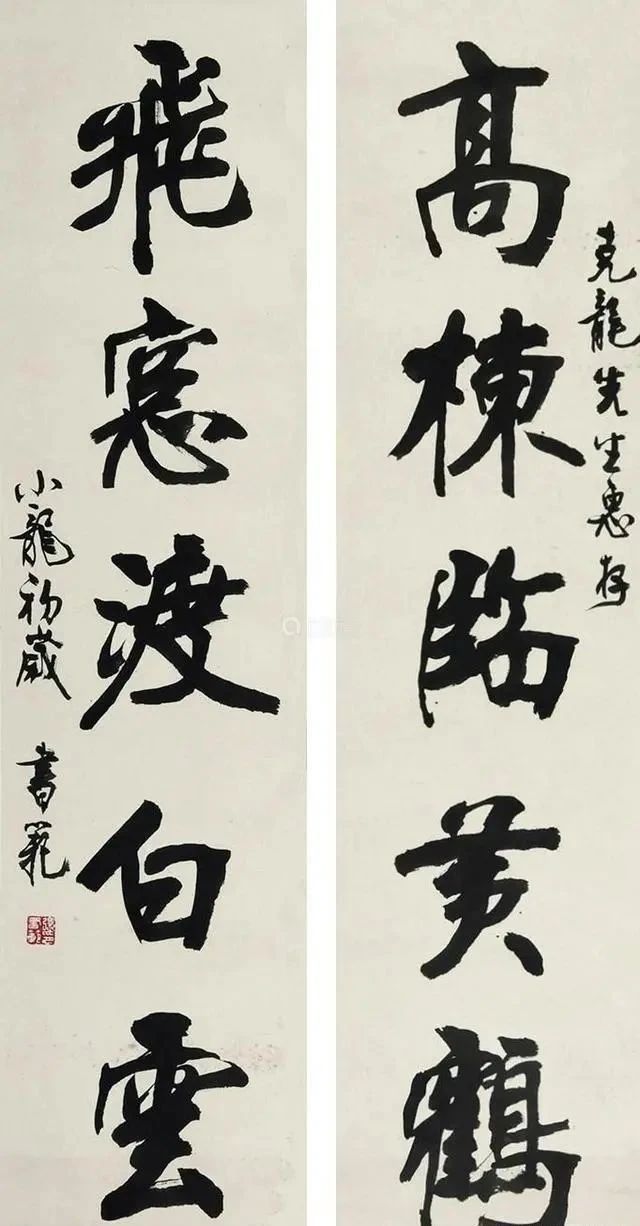 克龍先生惠存
高棟臨黄鶴
飛窓渡白雲
小龍初歲 書範